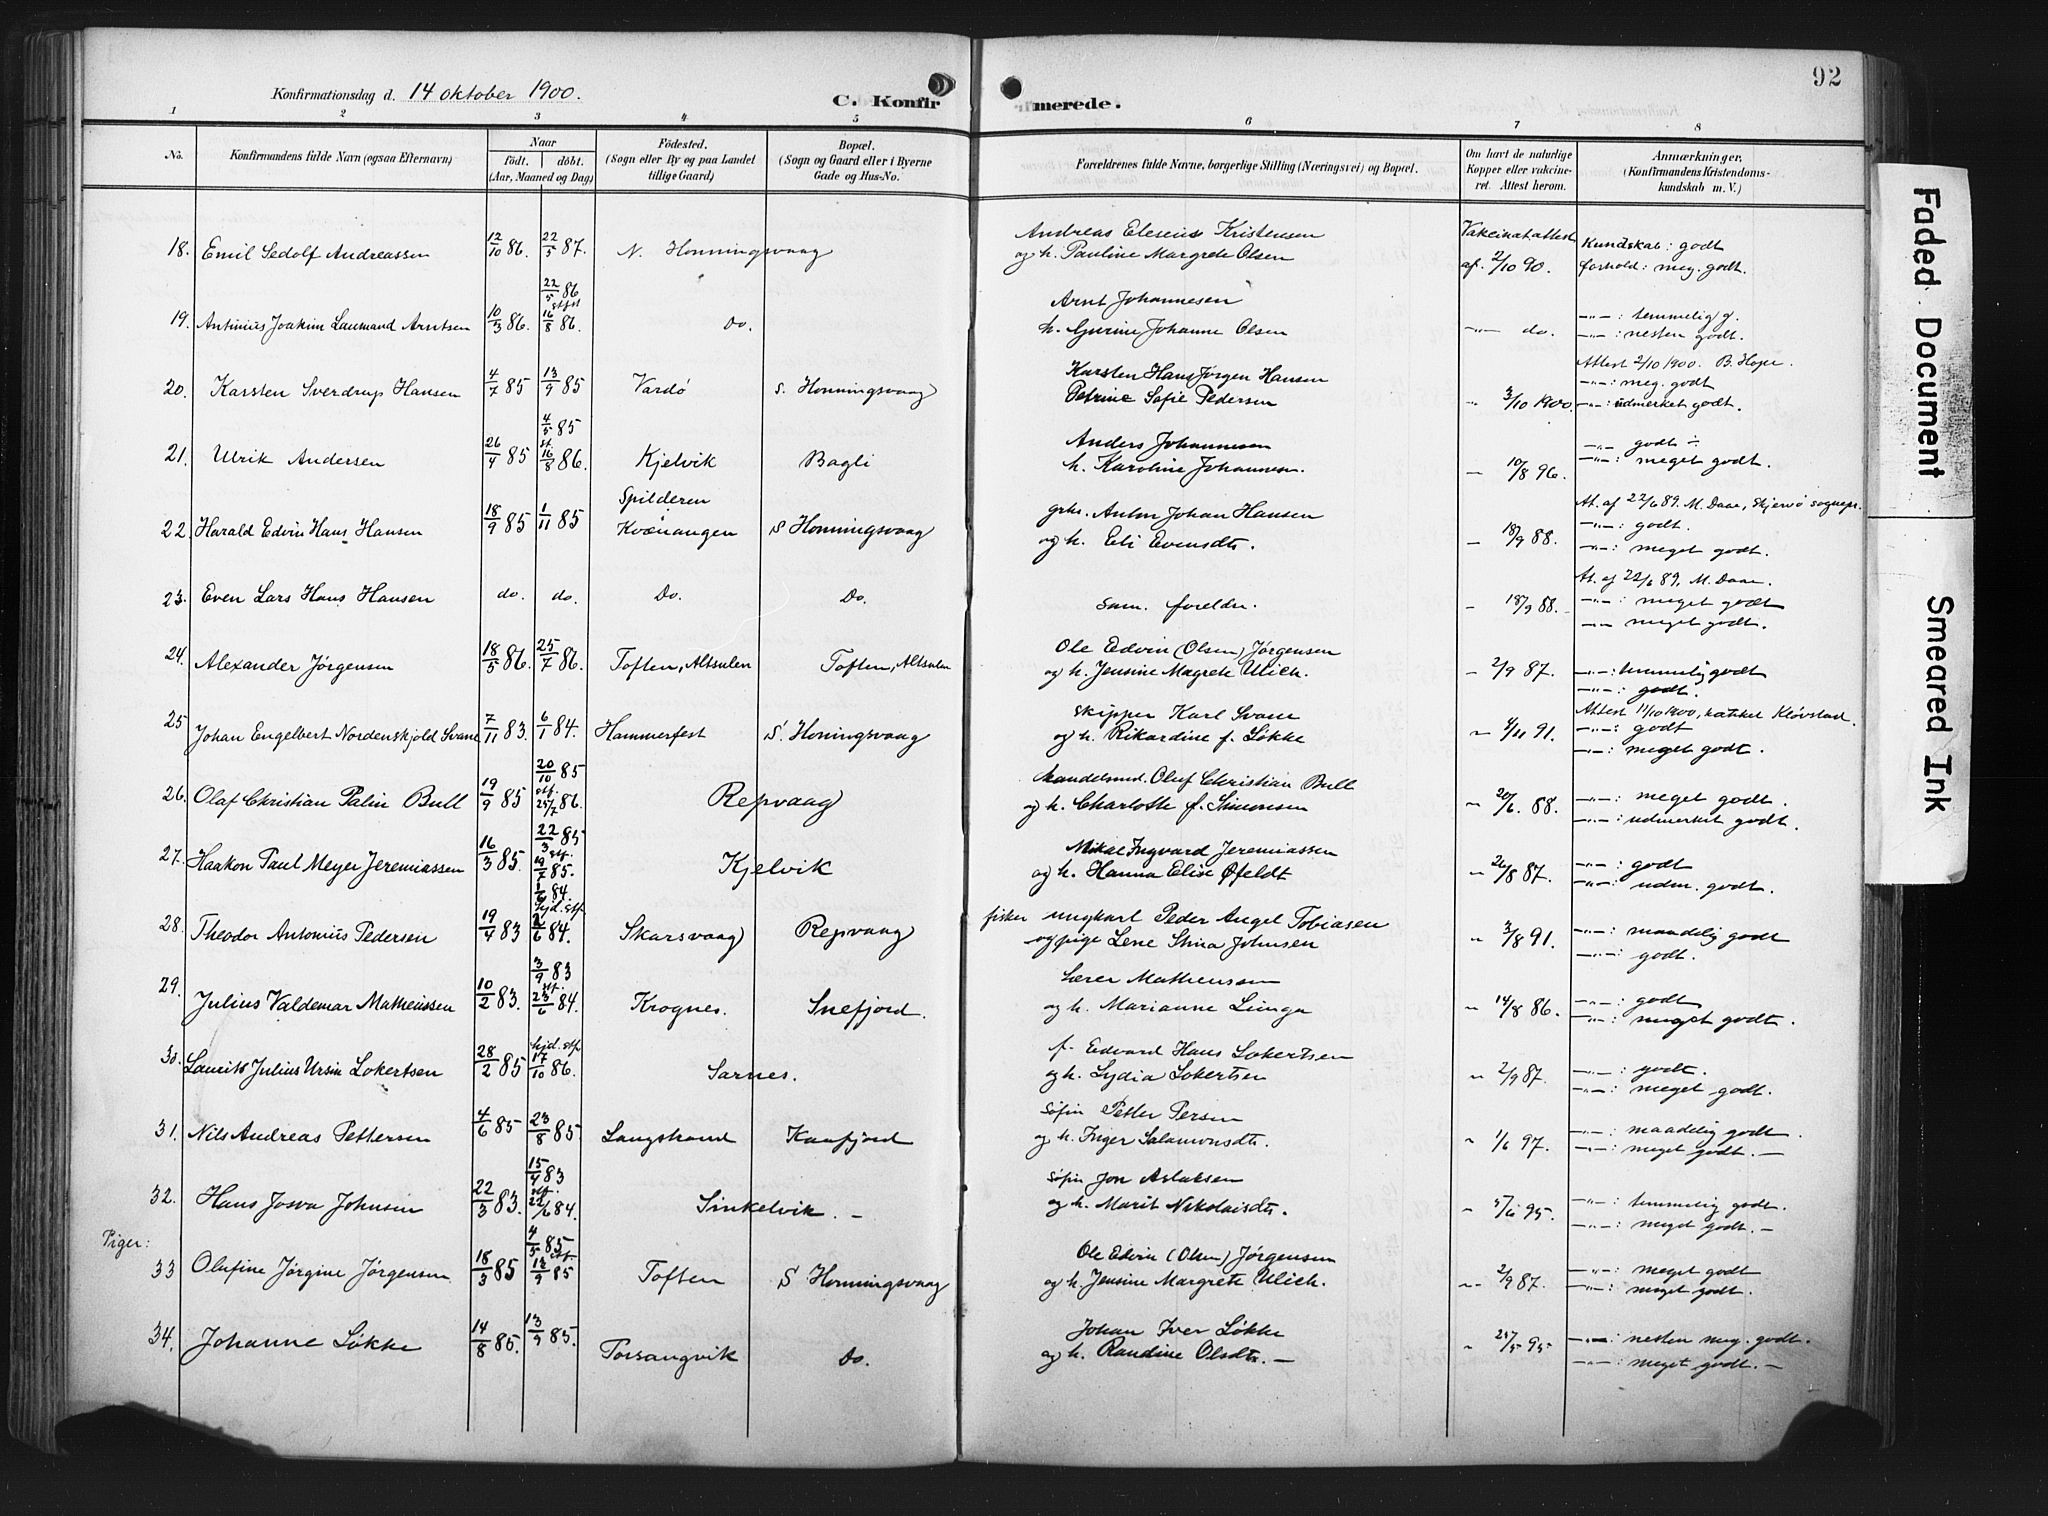 92
Konfirmationsdag d. 14 oktober 1900.
C. Konfirmerede.
1 2 3 4 5 6 7 8
No.
Konfirmandens fulde Navn (ogsaa Efternavn)
Naar
født. døbt.
(Aar, Maaned og Dag)
Fødested.
(Sogn eller By og paa Landet
tillige Gaard)
Bopæl.
(Sogn og Gaard eller i Byerne
Gade og Hus-No.
Forældrenes fulde Navne, borgerlige Stilling (Næringsvei) og Bopæl.
Om havt de naturlige
Kopper eller vakcine-
ret. Attest herom.
Anmærkninger,
(Konfirmandens Kristendoms-
kundskab m. V.)
18. Emil Sedolf Andreassen 12/10 86. 22/5 87. N. Honningsvaag
Andreas Eleseus Kristensen
og h. Pauline Margrete Olsen
Vakcinat.attest
af. 2/10 90.
Kundskab: godt
forhold: meg. godt.
19. Antinius Joakim Laumand Arntsen 10/3 86. 22/5 86 stfst 16/8 86. Do.
Arnt Johannesen
h. Gurine Johanne Olsen
-"- do.
-"-: temmelig g.
-"-: nesten godt.
20. Karsten Sverdrup Hansen 4/7 85 13/9 85 Vardø S. Honningsvaag
Karsten Hans Jørgen Hansen
Petrine Sofie Pedersen
" 3/10 1900.
Attest 2/10 1900. B. Hope.
-"-: meg. godt
-"-: udmerket godt.
21. Ulrik Andersen 26/4 85 4/5 85 st. 16/8 86. Kjelvik Bagli
Anders Johannesen
h. Karoline Johannesn.
- 10/8 96.
-"- godt ÷
-"-: meget godt.
22. Harald Edvin Hans Hansen 18/9 85 1/11 85 Spilderen Kvænangen S Honningsvaag
grhr. Anton Johan Hansen
og h. Eli Evensdtr.
- 18/9 88.
At. af 22/6 89. M. Daae, Skjervø sognepr.
-"-: godt.
-"-: meget godt.
23. Even Lars Hans Hansen do. do. Do. Do.
sam. foreldre.
- 18/9 88.
At. af 22/6 89. M. Daae.
-"-: meget godt
-"- meget godt.
24. Alexander Jørgensen 18/5 86. 25/7 86. Toften, Altsulen Toften, Altsulen
Ole Edvin (Olsen) Jørgensen
og h. Jensine Magrete Ulich.
- 2/9 87.
-"-: temmelig godt
-"-: godt.
25 Johan Engelbert Nordenskjold Svane 7/11 83. 6/1 84. Hammerfest S. Honingsvaag
skipper Karl Svane
og h. Rikardine f. Løkke
" 4/11 91.
Attest 11/10 1900, katiket Kløvstad.
-"-: godt
-"-: meget godt.
26. Olaf Christian Palin Bull 19/9 85 20/10 85 stf. 25/7 86. Repvaag
handelsmd. Oluf Christian Bull
og h. Charlotte f. Simonsen
" 20/6. 88.
-"-: meget godt.
-"-: udmerket godt.
27. Haakon Paul Meyer Jeremiassen 16/3 85. 22/3 85 stf. 19/7 85. Kjelvik
Mikal Ingvard Jeremiassen
og h. Hanna Elise Øfeldt
" 26/8 87.
-"-: godt
-"-: udm. godt.
28. Theodor Antonius Pedersen 19/4 83 1/6 84. hjd. stf. 2/6 84. Skarsvaag Repvaag
fisker ungkarl Peder Angel Tobiasen
og pige Lene Stina Johnsen
" 3/8 91.
-"-: maadelig godt
-"-: godt.
29. Julius Valdemar Matheussen 10/2 83. 3/9 83 stf. 23/6 84. Krognes. Snefjord.
Lærer Matheussen
og h. Marianne Ljunga
" 14/8 86.
-"-: godt
-"-: meget godt.
30. Laurits Julius Ursin Lokertsen 28/2 85 hjd. stf 17/10 86. Sarnes.
f. Edvard Hans Lokertsen
og h. Lydia Lokertsen
" 2/9 87.
-"-: godt.
-"-: meget godt.
31. Nils Andreas Pettersen 4/6 85 23/8 85. Langstrand Kaafjord
søfin Petter Persen
og h. Inger Salamonsdtr.
" 1/6 97.
-"-: maadelig godt.
-"-: meget godt. -
32. Hans Josva Johnsen 22/3 83. 15/4 83 stf. 22/6 84. Sinkelvik. -
søfin Jon Aslaksen
og h. Marit Nikolaisdtr.
" 5/6 95.
-"-: temmelig godt.
-"-: meget godt. -
Piger:
33 Olufine Jørgine Jørgensen 18/3 85 4/5 85 stf. 13/9 85 Toften S Honningsvaag
Ole Edvin (Olsen) Jørgensen
og h. Jensine Margrete Ulich.
" 2/9 87.
-"-: meget godt
-"-: meget godt.
34. Johanne Løkke 14/8 85. 13/9 85. Porsangvik Do.
Johan Iver Løkke
og h. Randine Olsdtr. -
" 25/5 95
-"-: nesten meg. godt.
-"-: meget godt. -
Faded Document
Smeared Ink